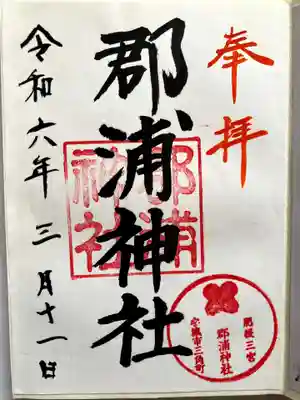 奉拝
郡浦神社
郡浦
神社
肥後三宮
郡浦神社
宇城市三角町
令和六年三月十一日